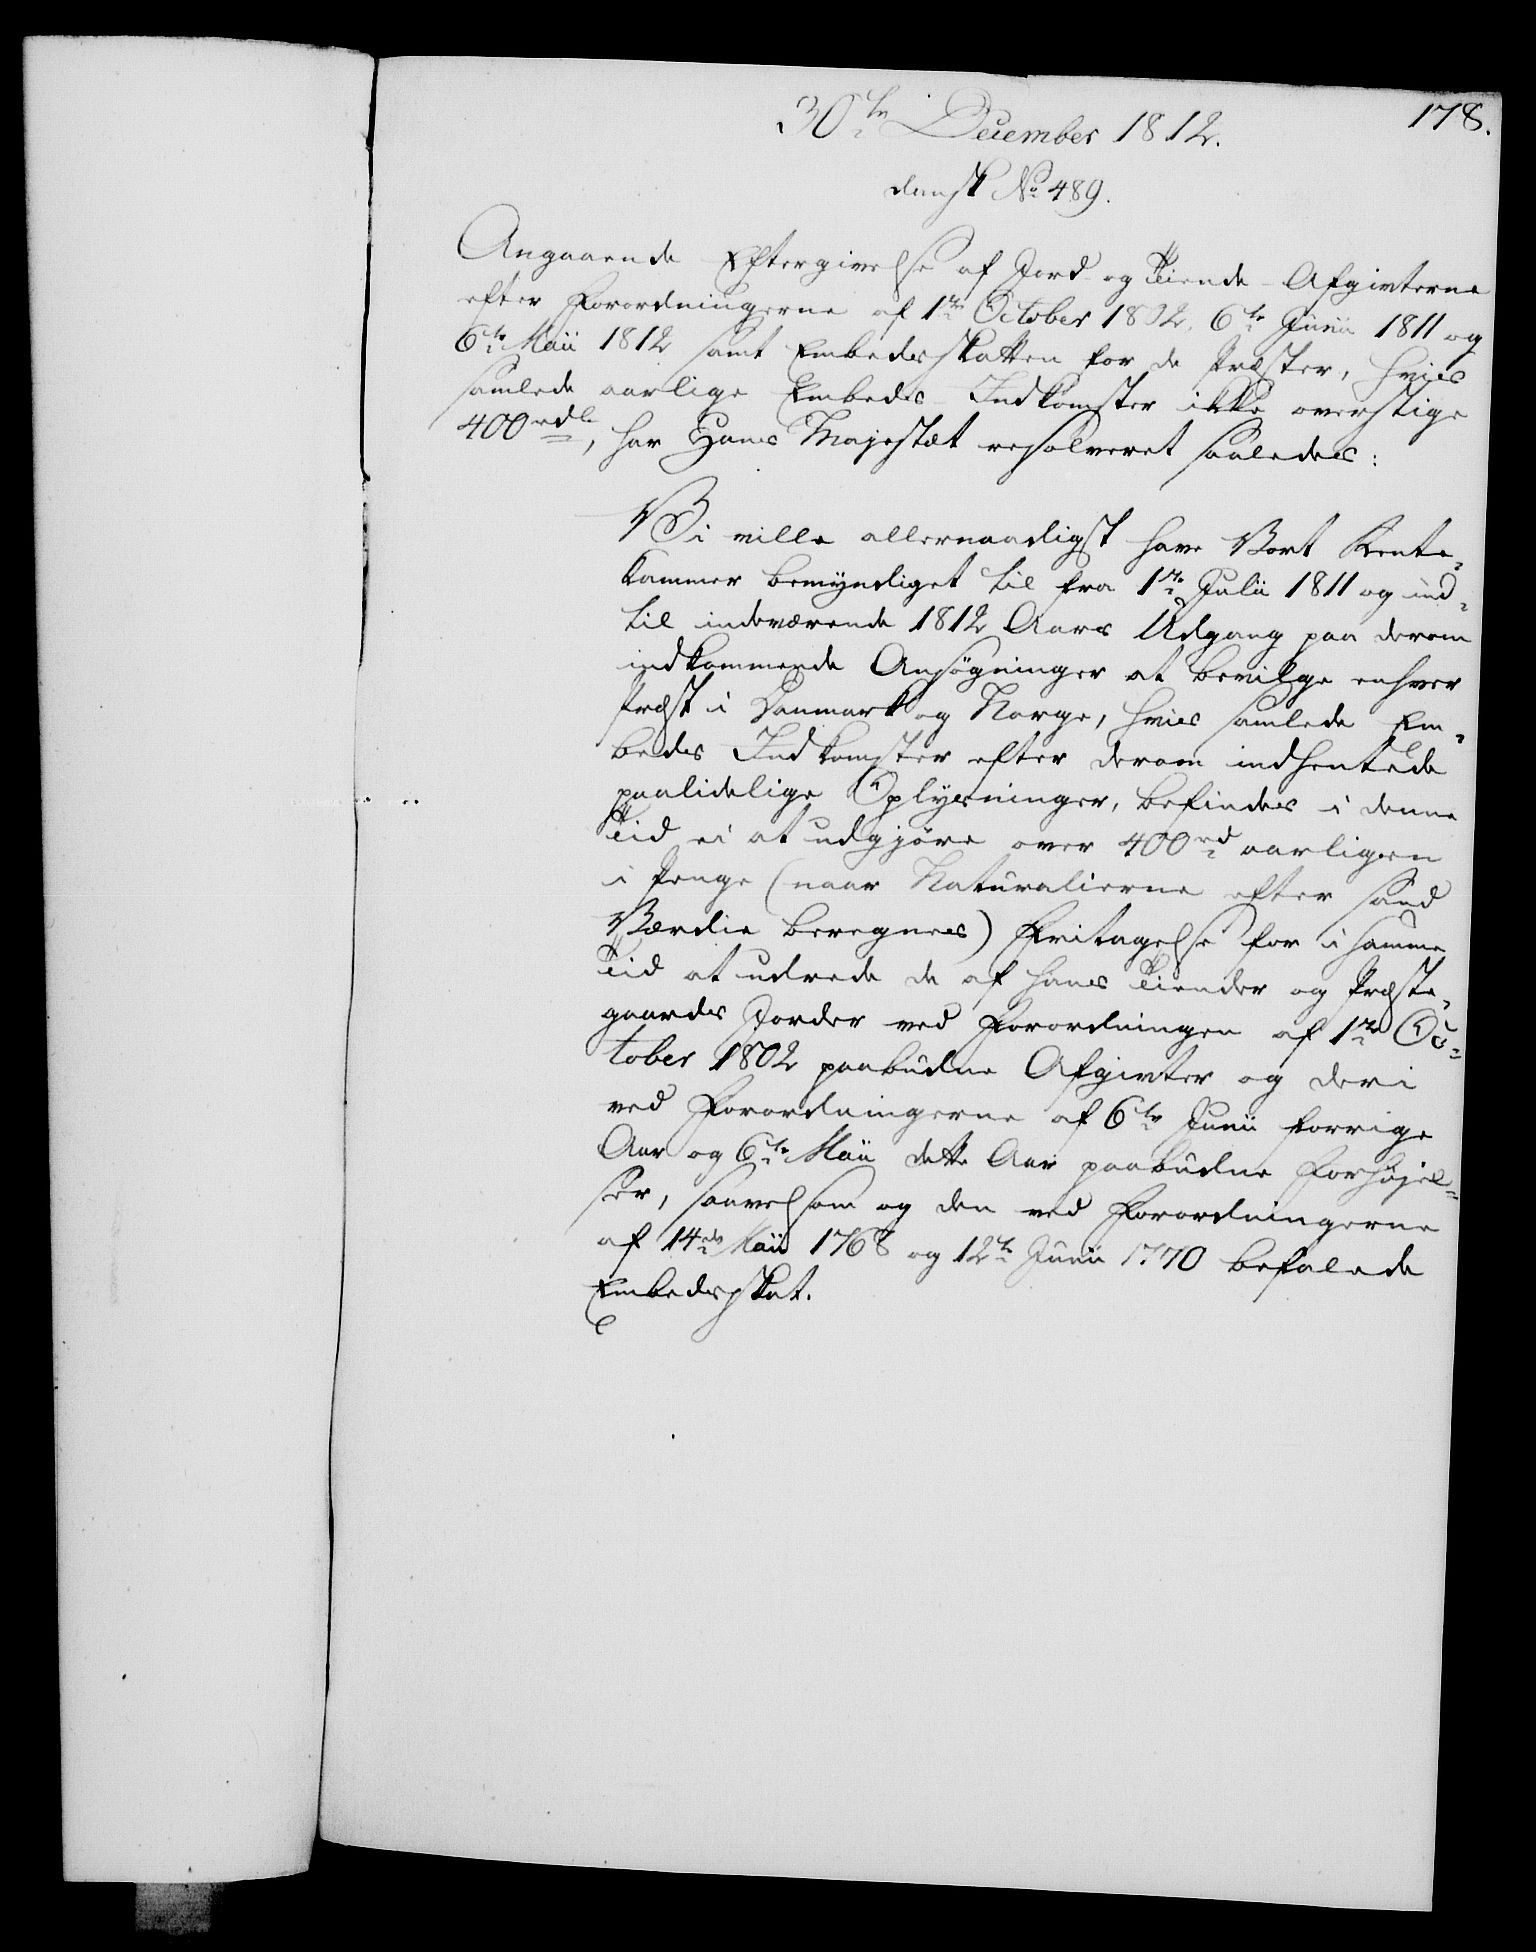 178.
30te December 1812.
dansk No 489.
Angaaende Eftergivelse af Jord- og Tiende-Afgivterne
efter Forordningerne af 1te October 1802, 6te Junii 1811 og
6te Maii 1812 samt Embedsskatten for de Præster, hvis
samlede aarlige Embeds-Indkomster ikke overstige
400 rdl., har Hans Majestæt resolveret saaledes:
Vi ville allernaadigst have Vort Rente-
kammer bemyndiget til fra 1te Julii 1811 og ind-
til indeværende 1812 Aars Udgang paa derom
indkommende Ansøgninger at bevilge enhver
Præst i Danmark og Norge, hvis samlede Em-
beds Indkomster efter derom indhentede
paalidelige Oplysninger, befindes i denne
Tid ei at udgjøre over 400 rd aarligen
i Penge (naar Naturalierne efter sand
Værdie beregnes) Fritagelse for i samme
Tid at udrede de af hans Tiender og Præste-
gaards Jorder ved Forordningen af 1te Oc-
tober 1802 paabudne Afgivter og deri
ved Forordningerne af 6te Junii forrige
Aar og 6te Maii dette Aar paabudne Forhøjel-
ser, saavelsom og den ved Forordningerne
af 14de Maii 1768 og 12te Junii 1770 befalede
Embedsskat.